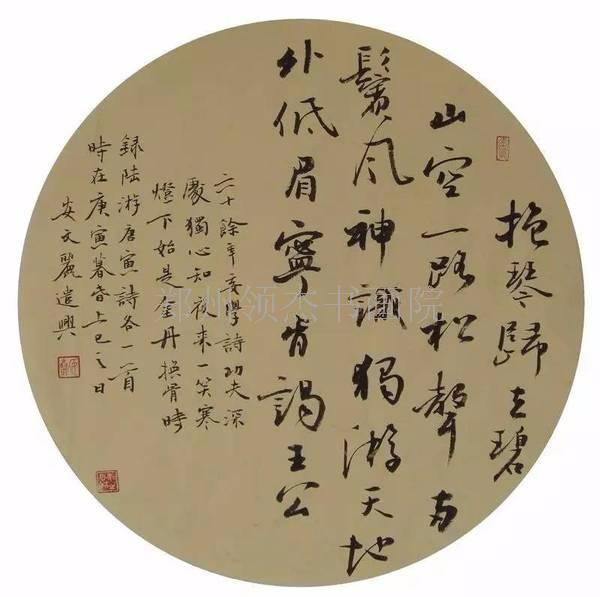 抱琴歸去碧
山空一路松聲兩
鬢風神識獨游天地
外低眉寧肯謁王公
六十餘年妄學詩功夫深
處獨心知夜來一笑寒
燈下始是金丹換骨時
録陸游唐寅詩各一首
時在庚寅暮春上巳之日
安文麗遣興
郑州领杰书画院